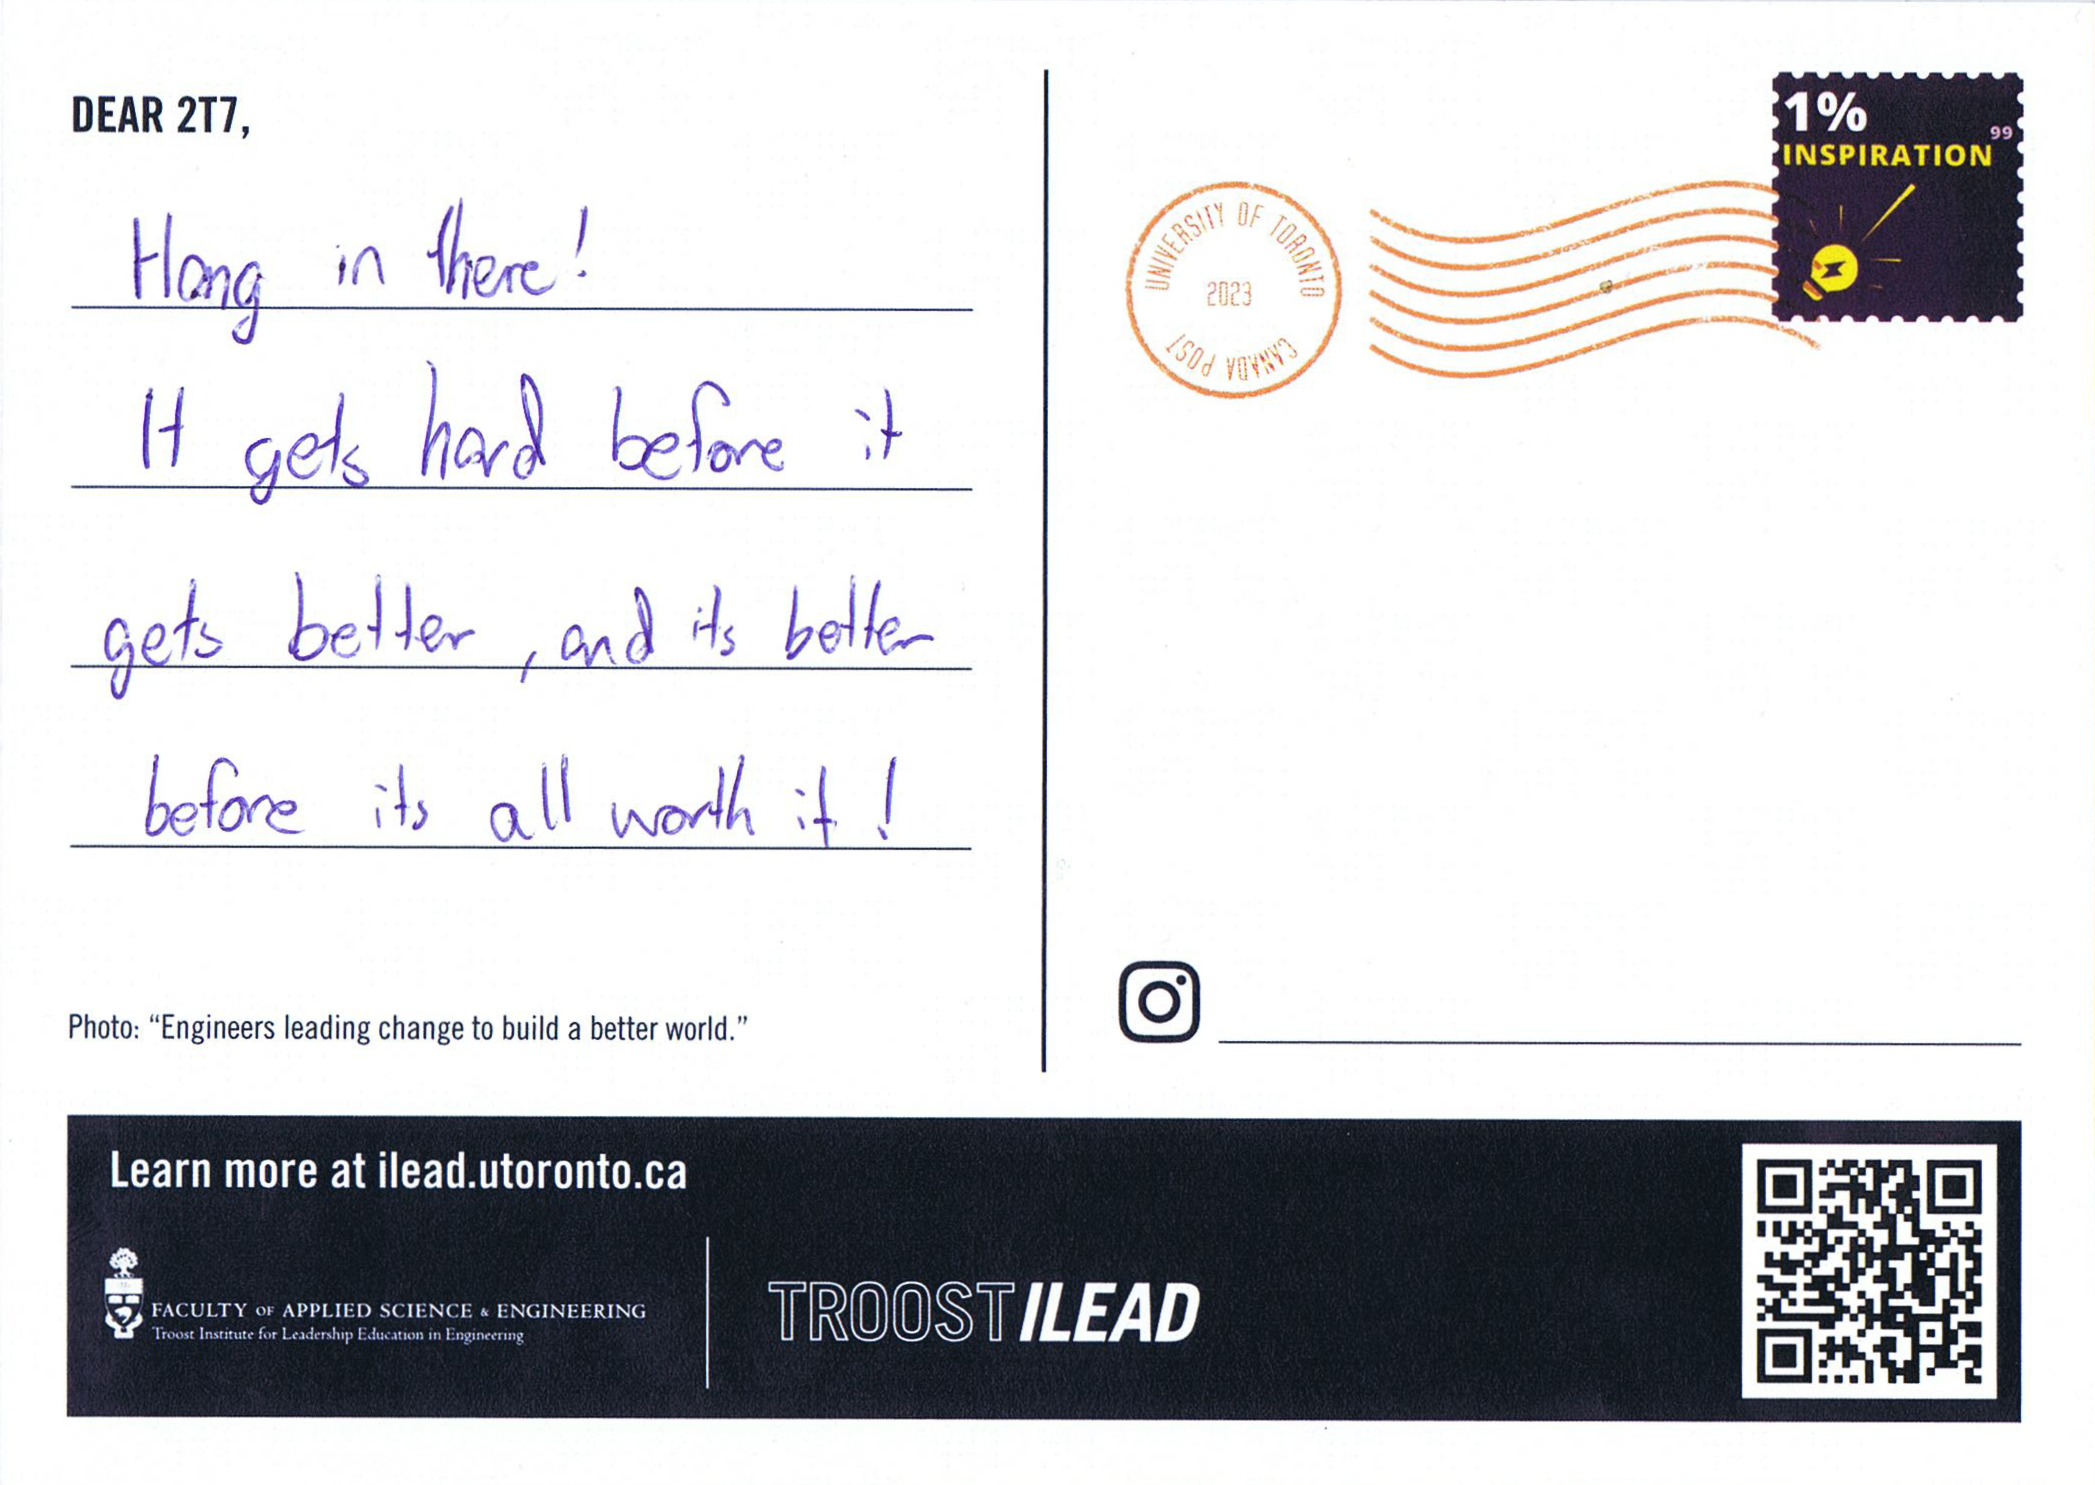 DEAR 2T7,
Hang in there!
It gets hard before it
gets better, and its better
before its all worth it!
Photo: “Engineers leading change to build a better world.”
1%
99
INSPIRATION
UNIVERSITY OF TORONTO
2023
CANADA POST
Learn more at ilead.utoronto.ca
FACULTY OF APPLIED SCIENCE & ENGINEERING
Troost Institute for Leadership Education in Engineering
TROOST ILEAD